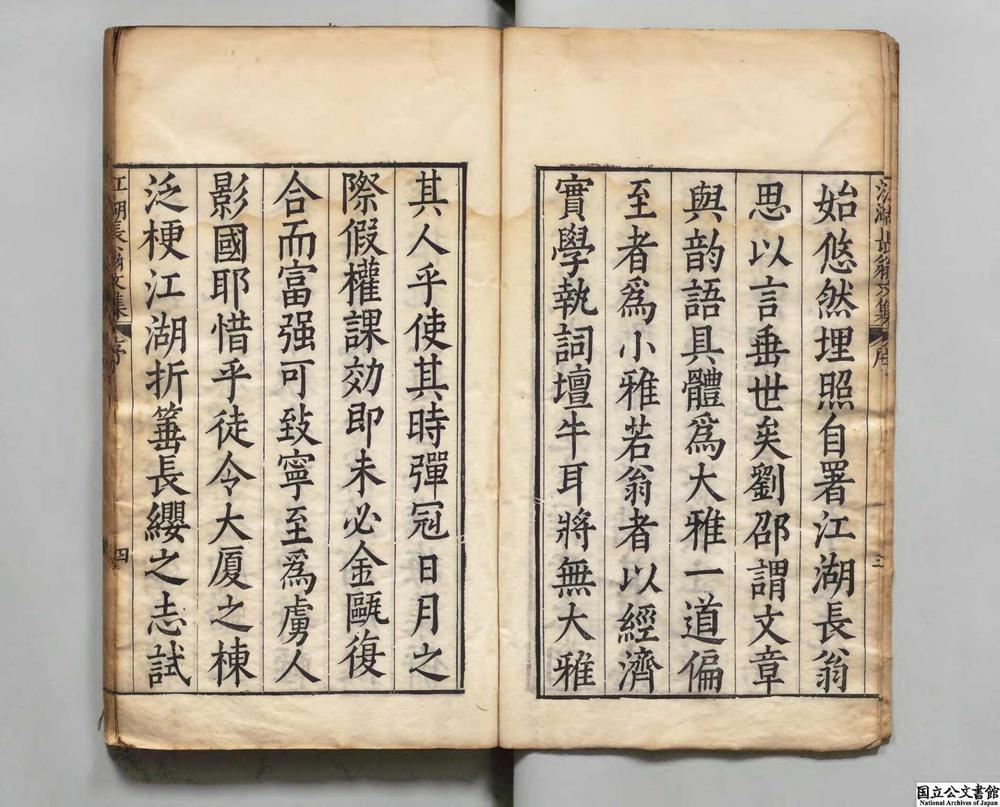 江湖長翁文集
序
三
始悠然埋照自署江湖長翁
思以言垂世矣劉邵謂文章
與韵語具體爲大雅一道偏
至者爲小雅若翁者以經濟
實學執詞壇牛耳將無大雅
其人乎使其時彈冠日月之
際假權課効即未必金甌復
合而富强可致寧至爲虜人
影國耶惜乎徒令大厦之棟
泛梗江湖折箠長纓之志試
江湖長翁文集
序
四
国立公文書館
National Archives of Japan